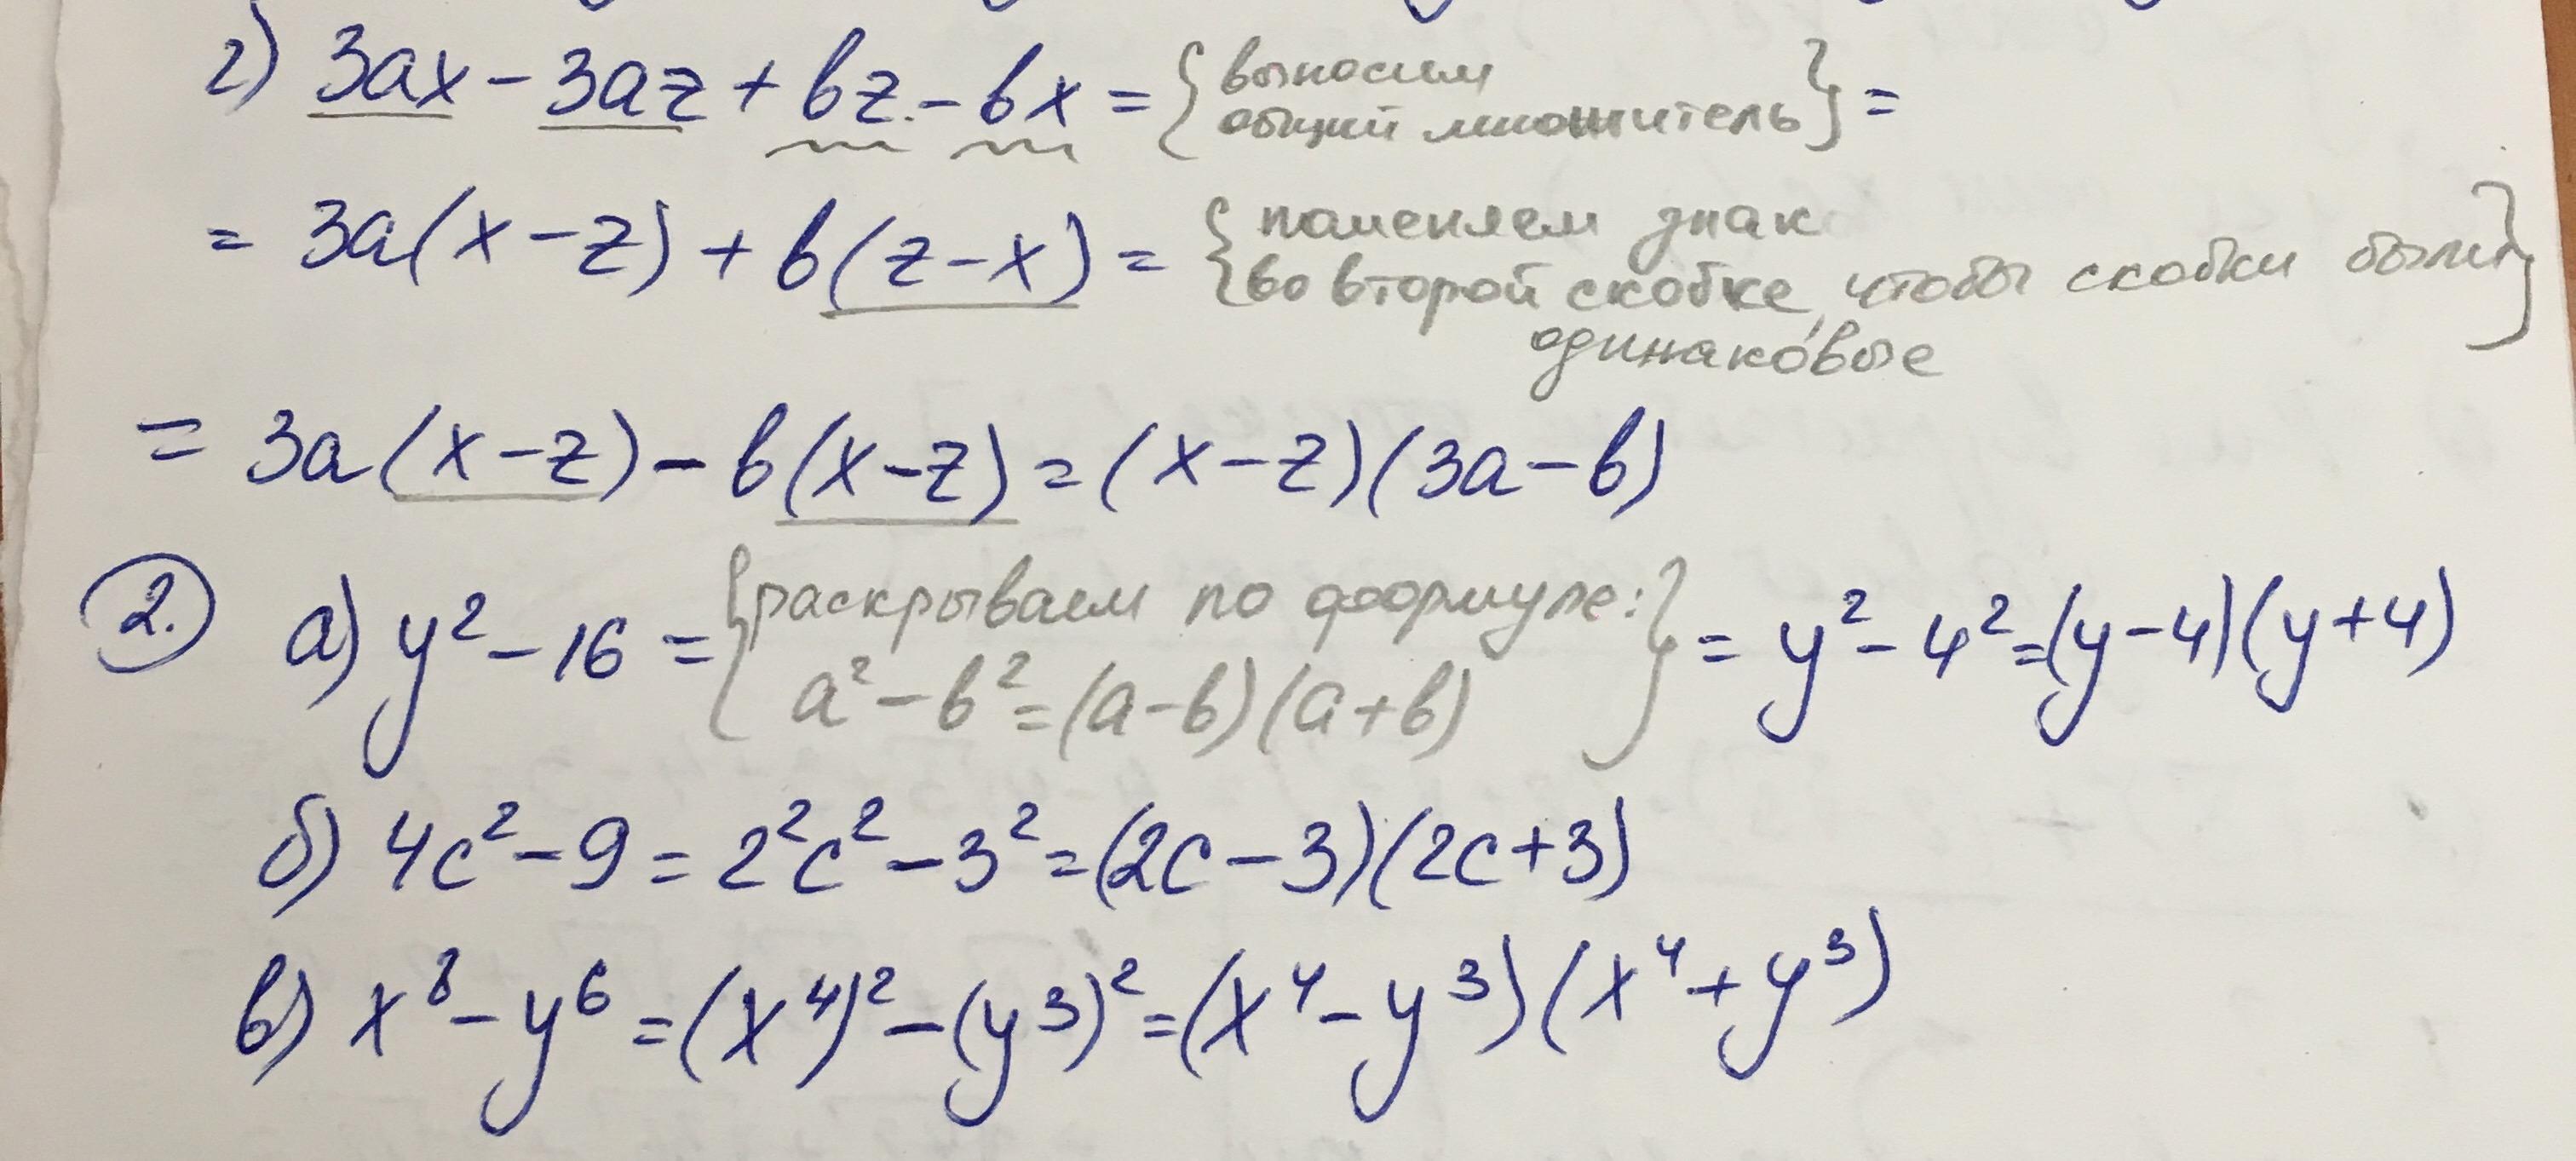 г) 3ax - 3az + bz - bx = { выносим
общий множитель } =
= 3a(x-z) + b(z-x) = { поменяем знак
во второй скобке, чтобы скобки были }
одинаковые
= 3a(x-z) - b(x-z) = (x-z)(3a-b)
2. а) y² - 16 = { раскрываем по формуле: } = y² - 4² = (y-4)(y+4)
a² - b² = (a-b)(a+b)
б) 4c² - 9 = 2²c² - 3² = (2c-3)(2c+3)
в) x⁸ - y⁶ = (x⁴)² - (y³)² = (x⁴ - y³)(x⁴ + y³)